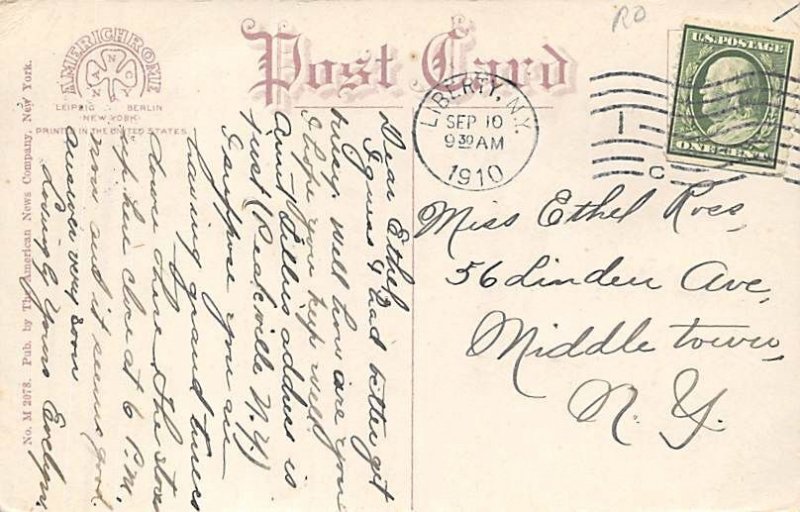 RO
AMERICHROME
LEIPZIG BERLIN
NEW YORK
PRINTED IN THE UNITED STATES
Post Card
U.S. POSTAGE
ONE CENT
LIBERTY, N.Y.
SEP 10
9 30 AM
1910
1
C
Miss Ethel Ross,
56 Linden Ave,
Middletown,
N. Y.
Dear Ethel
I guess I had better get
busy. Well how are you
I hope you keep well.
Aunt Tillies address is
just (Peakville N.Y.)
I suppose you are
having grand times
down there. The stores
up here close at 6 P.M.
now and it seems good.
Answer very soon
Lovingly Yours Evelyn.
No. M 2078. Pub. by The American News Company, New York.